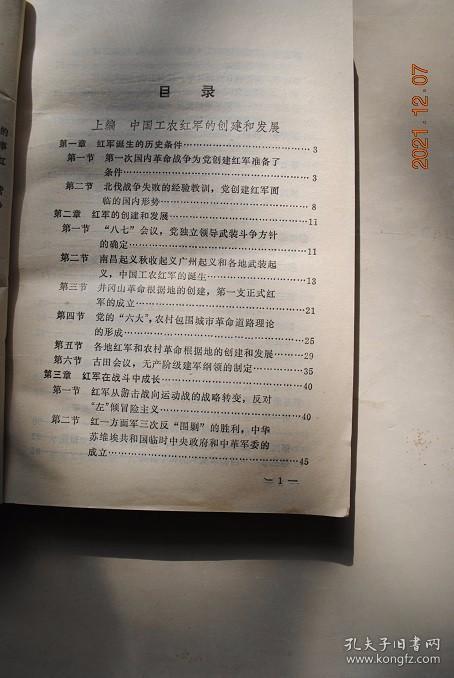 目录
上编 中国工农红军的创建和发展
第一章 红军诞生的历史条件……………………3
第一节 第一次国内革命战争为党创建红军准备了
条件……………………3
第二节 北伐战争失败的经验教训，党创建红军面
临的国内形势……………………8
第二章 红军的创建和发展……………………11
第一节 “八七”会议，党独立领导武装斗争方针
的确定……………………11
第二节 南昌起义秋收起义广州起义和各地武装起
义，中国工农红军的诞生……………………13
第三节 井冈山革命根据地的创建，第一支正式红
军的成立……………………21
第四节 党的“六大”，农村包围城市革命道路理论
的形成……………………25
第五节 各地红军和农村革命根据地的创建和发展……29
第六节 古田会议，无产阶级建军纲领的制定………35
第三章 红军在战斗中成长……………………40
第一节 红军从游击战向运动战的战略转变，反对
“左”倾冒险主义……………………40
第二节 红一方面军三次反“围剿”的胜利，中华
苏维埃共和国临时中央政府和中革军委的
成立……………………45
—1—
2021.12.07
孔夫子旧书网
www.kongfz.com